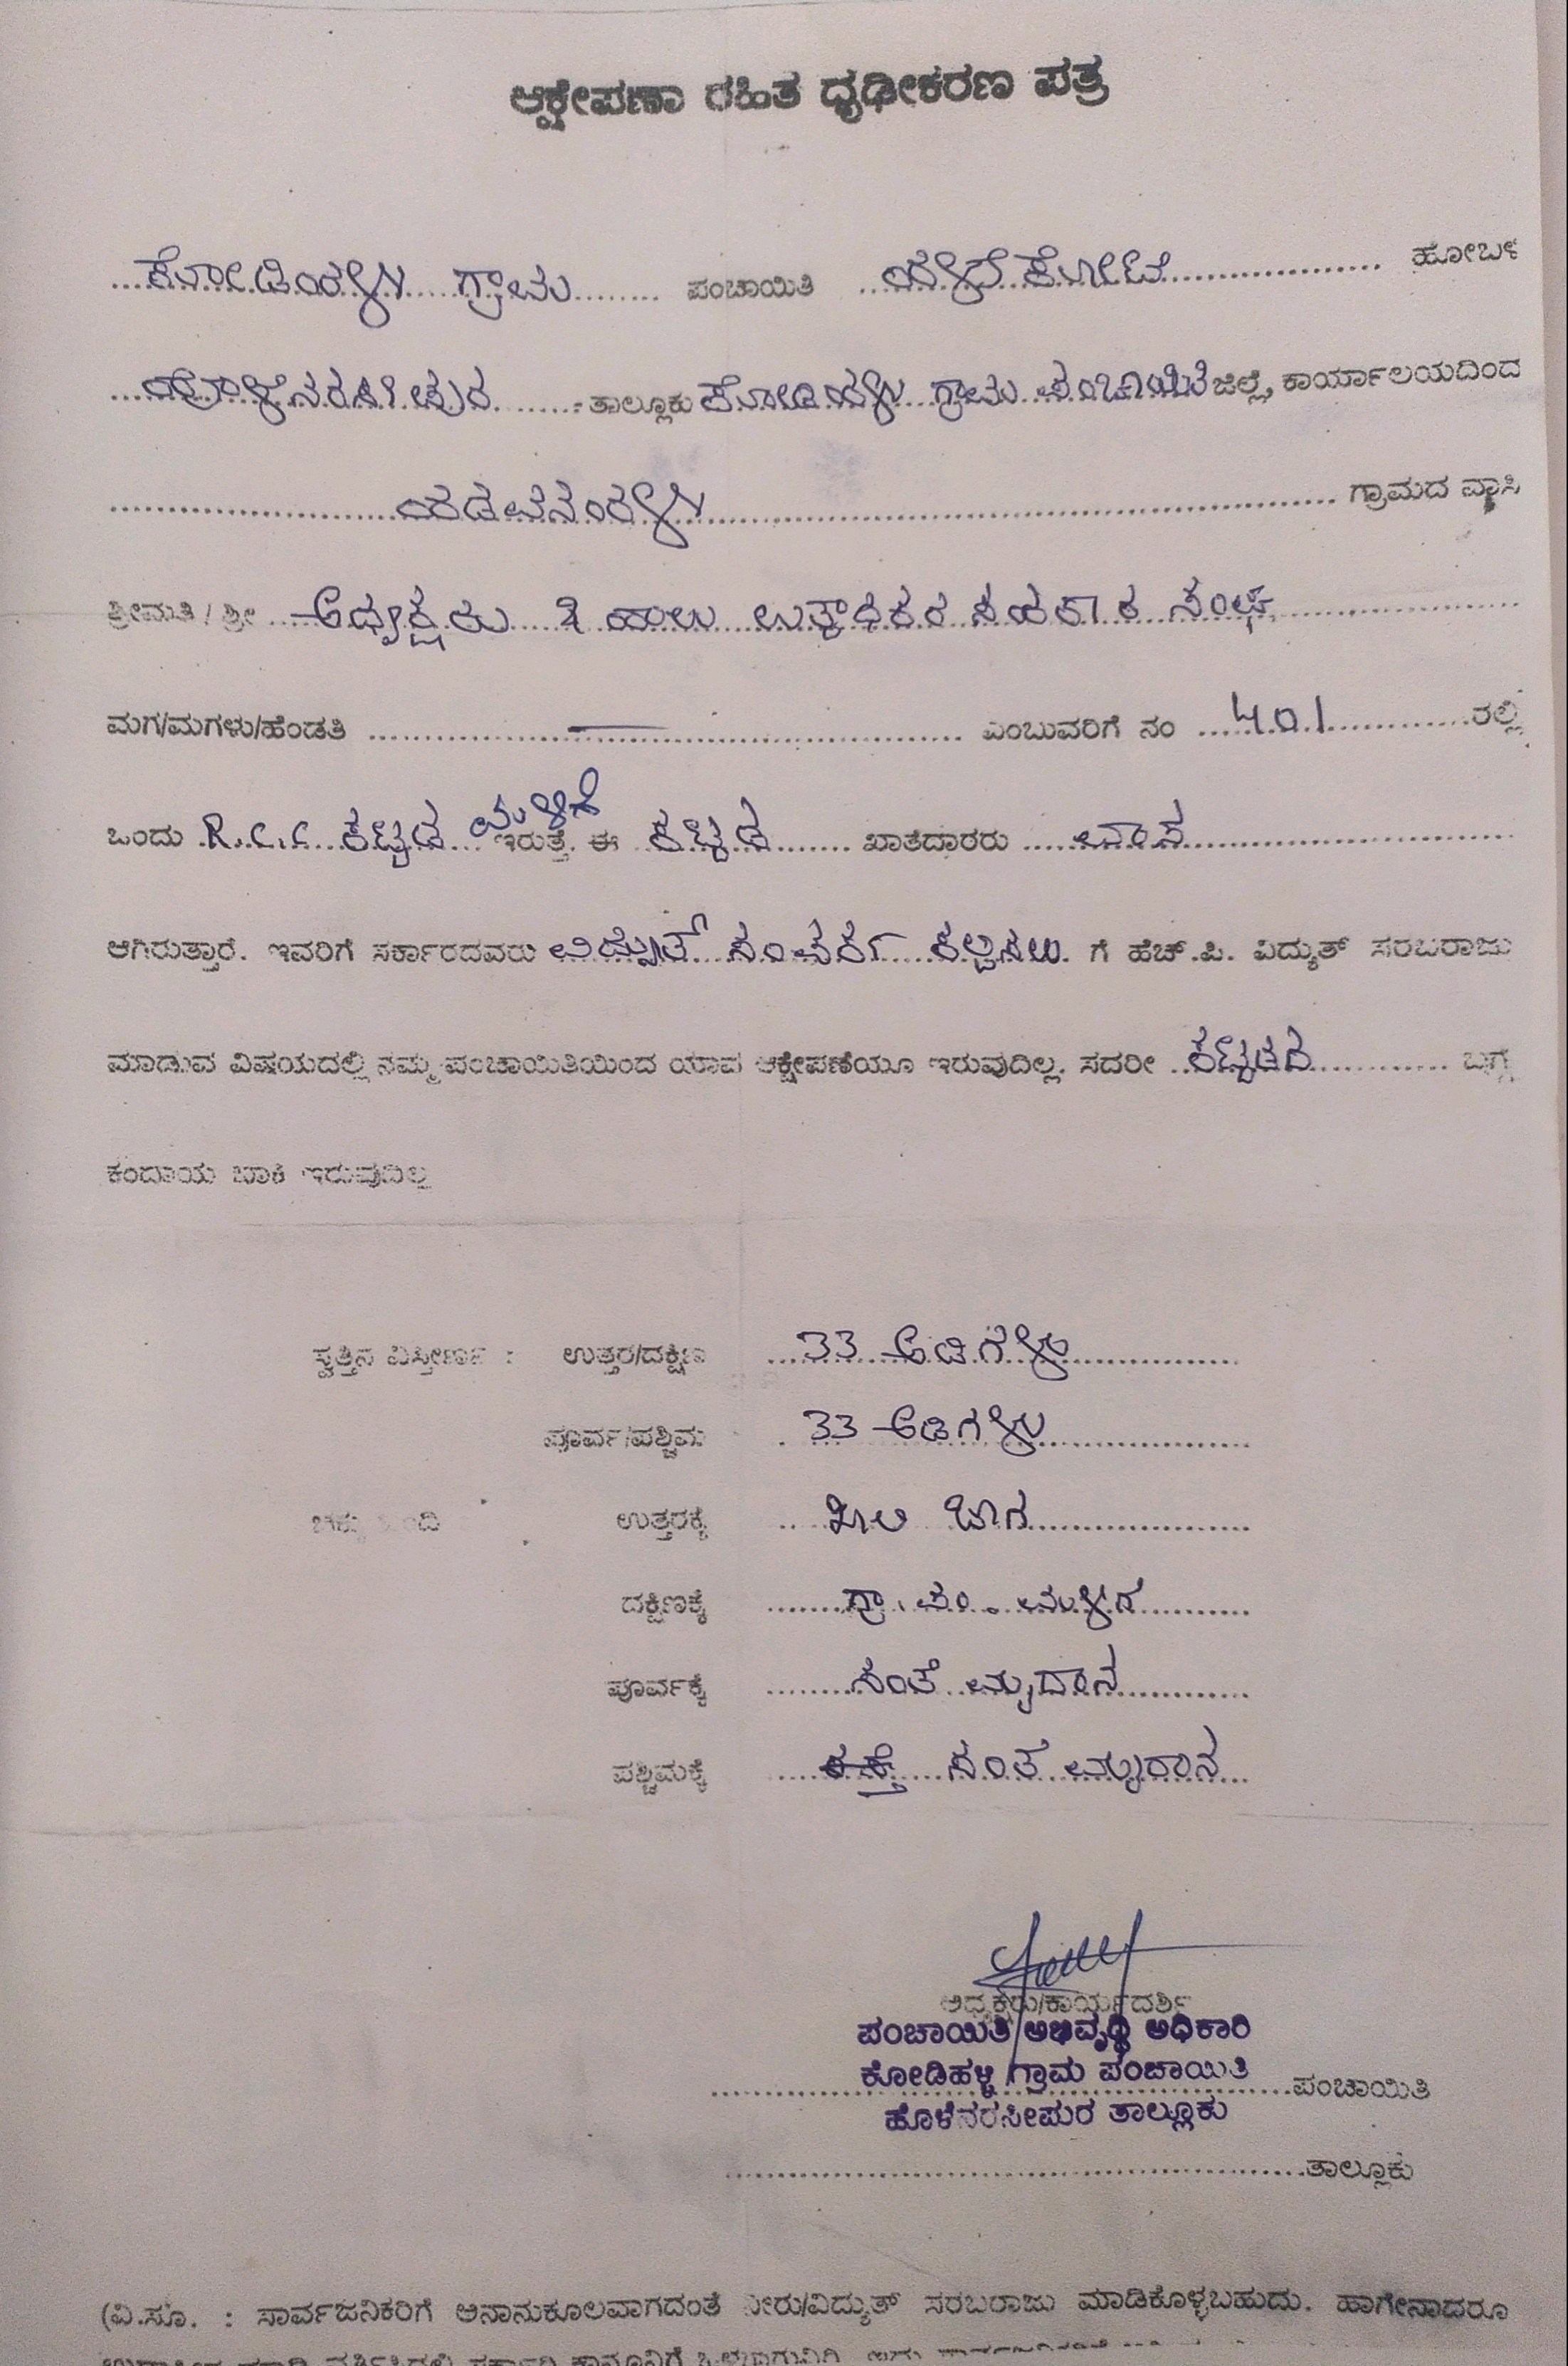 ಆಕ್ಷೇಪಣಾ ರಹಿತ ಧೃಢೀಕರಣ ಪತ್ರ
ಕೋಡಿಹಳ್ಳಿ ಗ್ರಾಮ ಪಂಚಾಯಿತಿ ಹಳೇಕೋಟೆ ಹೋಬಳಿ
ಹೊಳೆನರಸೀಪುರ ತಾಲ್ಲೂಕು ಕೋಡಿಹಳ್ಳಿ ಗ್ರಾಮ ಪಂಚಾಯಿತಿ ಜಿಲ್ಲೆ, ಕಾರ್ಯಾಲಯದಿಂದ
ಹಡವನಹಳ್ಳಿ ಗ್ರಾಮದ ವಾಸಿ
ಶ್ರೀಮತಿ / ಶ್ರೀ ಅಧ್ಯಕ್ಷರು ಹಾಲು ಉತ್ಪಾಧಕರ ಸಹಕಾರ ಸಂಘ
ಮಗ/ಮಗಳು/ಹೆಂಡತಿ — ಎಂಬುವರಿಗೆ ನಂ 401 ರಲ್ಲಿ
ಒಂದು R.C.C ಕಟ್ಟಡ ಮಳಿಗೆ ಇರುತ್ತೆ. ಈ ಕಟ್ಟಡ ಖಾತೆದಾರರು ವಾಸ
ಆಗಿರುತ್ತಾರೆ. ಇವರಿಗೆ ಸರ್ಕಾರದವರು ವಿದ್ಯುತ್ ಸಂಪರ್ಕ ಕಲ್ಪಿಸಲು ಗೆ ಹೆಚ್.ಪಿ. ವಿದ್ಯುತ್ ಸರಬರಾಜು
ಮಾಡುವ ವಿಷಯದಲ್ಲಿ ನಮ್ಮ ಪಂಚಾಯಿತಿಯಿಂದ ಯಾವ ಆಕ್ಷೇಪಣೆಯೂ ಇರುವುದಿಲ್ಲ. ಸದರೀ ಕಟ್ಟಡದ ಬಗ್ಗೆ
ಕಂದಾಯ ಬಾಕಿ ಇರುವುದಿಲ್ಲ
ಸ್ವತ್ತಿನ ವಿಸ್ತೀರ್ಣ : ಉತ್ತರ/ದಕ್ಷಿಣ 33 ಅಡಿಗಳು
ಪೂರ್ವ/ಪಶ್ಚಿಮ 33 ಅಡಿಗಳು
ಚಕ್ಕುಬಂದಿ ಉತ್ತರಕ್ಕೆ ಖಾಲಿ ಜಾಗ
ದಕ್ಷಿಣಕ್ಕೆ ಗ್ರಾ.ಪಂ. ಮಳಿಗೆ
ಪೂರ್ವಕ್ಕೆ ಸಂತೆ ಮೈದಾನ
ಪಶ್ಚಿಮಕ್ಕೆ ರಸ್ತೆ ಸಂತೆ ಮೈದಾನ
ಅಧ್ಯಕ್ಷರು/ಕಾರ್ಯದರ್ಶಿ
ಪಂಚಾಯಿತಿ ಅಭಿವೃದ್ಧಿ ಅಧಿಕಾರಿ
ಕೋಡಿಹಳ್ಳಿ ಗ್ರಾಮ ಪಂಚಾಯಿತಿ ಪಂಚಾಯಿತಿ
ಹೊಳೆನರಸೀಪುರ ತಾಲ್ಲೂಕು
ತಾಲ್ಲೂಕು
(ವಿ.ಸೂ. : ಸಾರ್ವಜನಿಕರಿಗೆ ಅನಾನುಕೂಲವಾಗದಂತೆ ನೀರು/ವಿದ್ಯುತ್ ಸರಬರಾಜು ಮಾಡಿಕೊಳ್ಳಬಹುದು. ಹಾಗೇನಾದರೂ